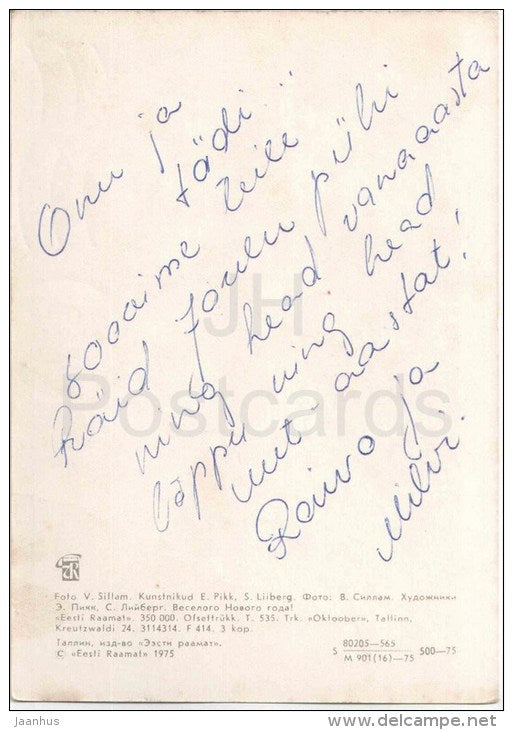 Onu ja
tädi!
Soovime Teile
häid Jõulu pühi
ning head vanaaasta
lõppu ning head
uut-aastat!
Raivo ja
Milvi.
JH
Postcards
Foto V. Sillam. Kunstnikud E. Pikk, S. Liiberg. Фото: В. Силлам. Художники
Э. Пикк, С. Лийберг. Веселого Нового года!
«Eesti Raamat». 350 000. Ofsettrükk. T. 535. Trk. «Oktoober», Tallinn,
Kreutzwaldi 24. 3114314. F 414. 3 kop.
Таллин, изд-во «Ээсти раамат».
© «Eesti Raamat» 1975
S 80205—565 500—75
M 901(16)—75
jaanhus
www.delcampe.net